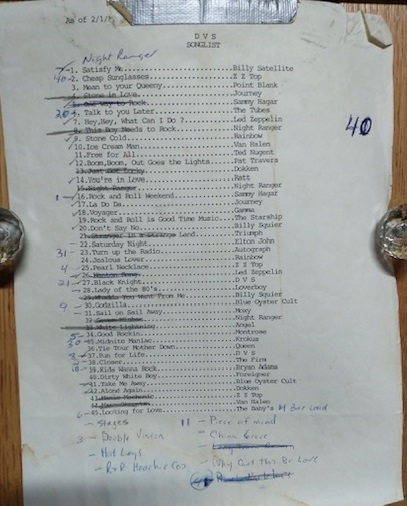 as of 2/1/
D V S
SONGLIST
Night Ranger
1. Satisfy Me Billy Satellite
40 2. Cheap Sunglasses Z Z Top
3. Mean to your Queeny Point Blank
4. Stone in Love Journey
5. One Way to Rock Sammy Hagar
20 6. Talk to you Later The Tubes
7. Hey,Hey, What Can I Do ? Led Zeppelin
8. This Boy Needs to Rock Night Ranger
9. Stone Cold Rainbow
40
10. Ice Cream Man Van Halen
11. Free for All Ted Nugent
12. Boom,Boom, Out Goes the Lights Pat Travers
13. Just Got Lucky Dokken
14. You're in Love Ratt
15. Night Ranger Night Ranger
1 16. Rock and Roll Weekend Sammy Hagar
17. La Do Da Journey
18. Voyager Gamma
19. Rock and Roll is Good Time Music The Starship
20. Don't Say No Billy Squier
21. Stranger in a Strange Land Triumph
22. Saturday Night Elton John
31 23. Turn up the Radio Autograph
24. Jealous Lover Rainbow
4 25. Pearl Necklace Z Z Top
26. Led Zeppelin
21 27. Black Knight D V S
28. Lady of the 80's Loverboy
29. Whadda You Want From Me Billy Squier
9 30. Godzilla Blue Oyster Cult
31. Sail on Sail Away Moxy
32. Seven Wishes Night Ranger
33. White Lightning Angel
34. Good Rockin Montrose
35. Midnite Maniac Krokus
36. Tie Your Mother Down Queen
37. Fun for Life D V S
38. Closer The Firm
39. Kids Wanna Rock Bryan Adams
40. Dirty White Boy Foreigner
41. Take Me Away Blue Oyster Cult
42. Alone Again Dokken
43. Z Z Top
44. Van Halen
6 45. Looking for Love The Baby's
- Stages 11 - Piece of mind
3 - Double Vision
- Hot Legs
- Why Cant This Be Love
- R&R